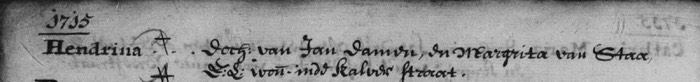 1715
Hendrina . . doch: van Jan Damen, en Margrita van Staa
E.L. won: inde Kalver straat.